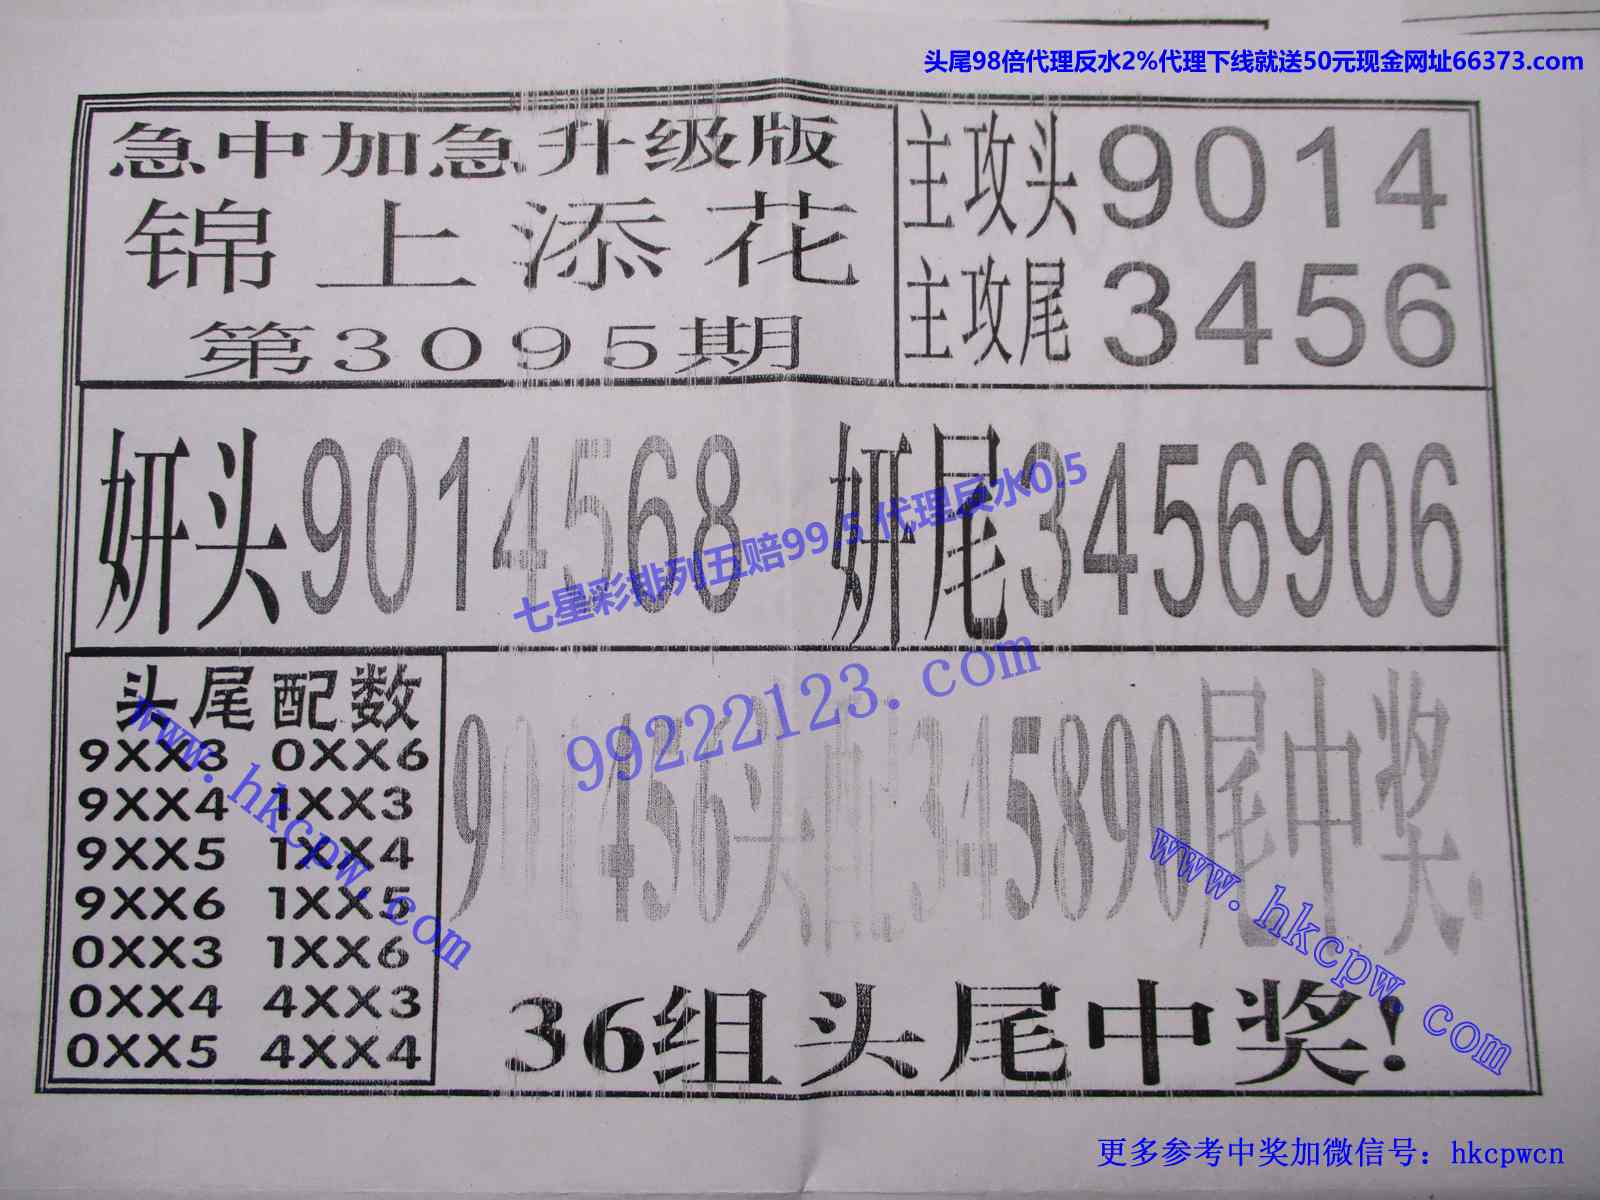 头尾98倍代理反水2%代理下线就送50元现金网址66373.com
急中加急升级版
锦上添花
第3095期
主攻头9014
主攻尾3456
妍头9014568
妍尾3456906
七星彩排列五赔99.5 代理反水0.5
99222123.com
头尾配数
9XX3 0XX6
9XX4 1XX3
9XX5 1XX4
9XX6 1XX5
0XX3 1XX6
0XX4 4XX3
0XX5 4XX4
901456头配345890尾中奖.
36组头尾中奖!
www.hkcpw.com
www.hkcpw.com
更多参考中奖加微信号：hkcpwcn